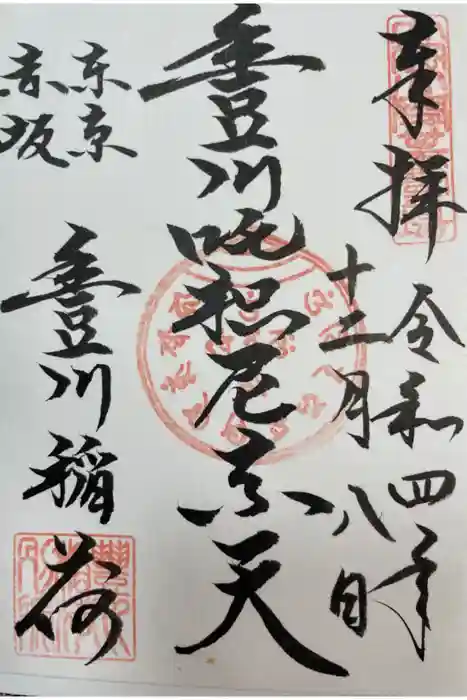 奉拝
令和四年
十二月八日
豊川吒枳尼真天
東京
赤坂
豊川稲荷